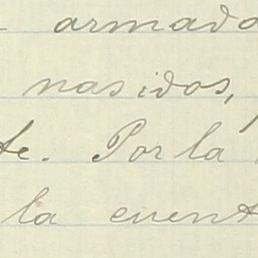 armada
nasidos,
te. Por la
la cuent